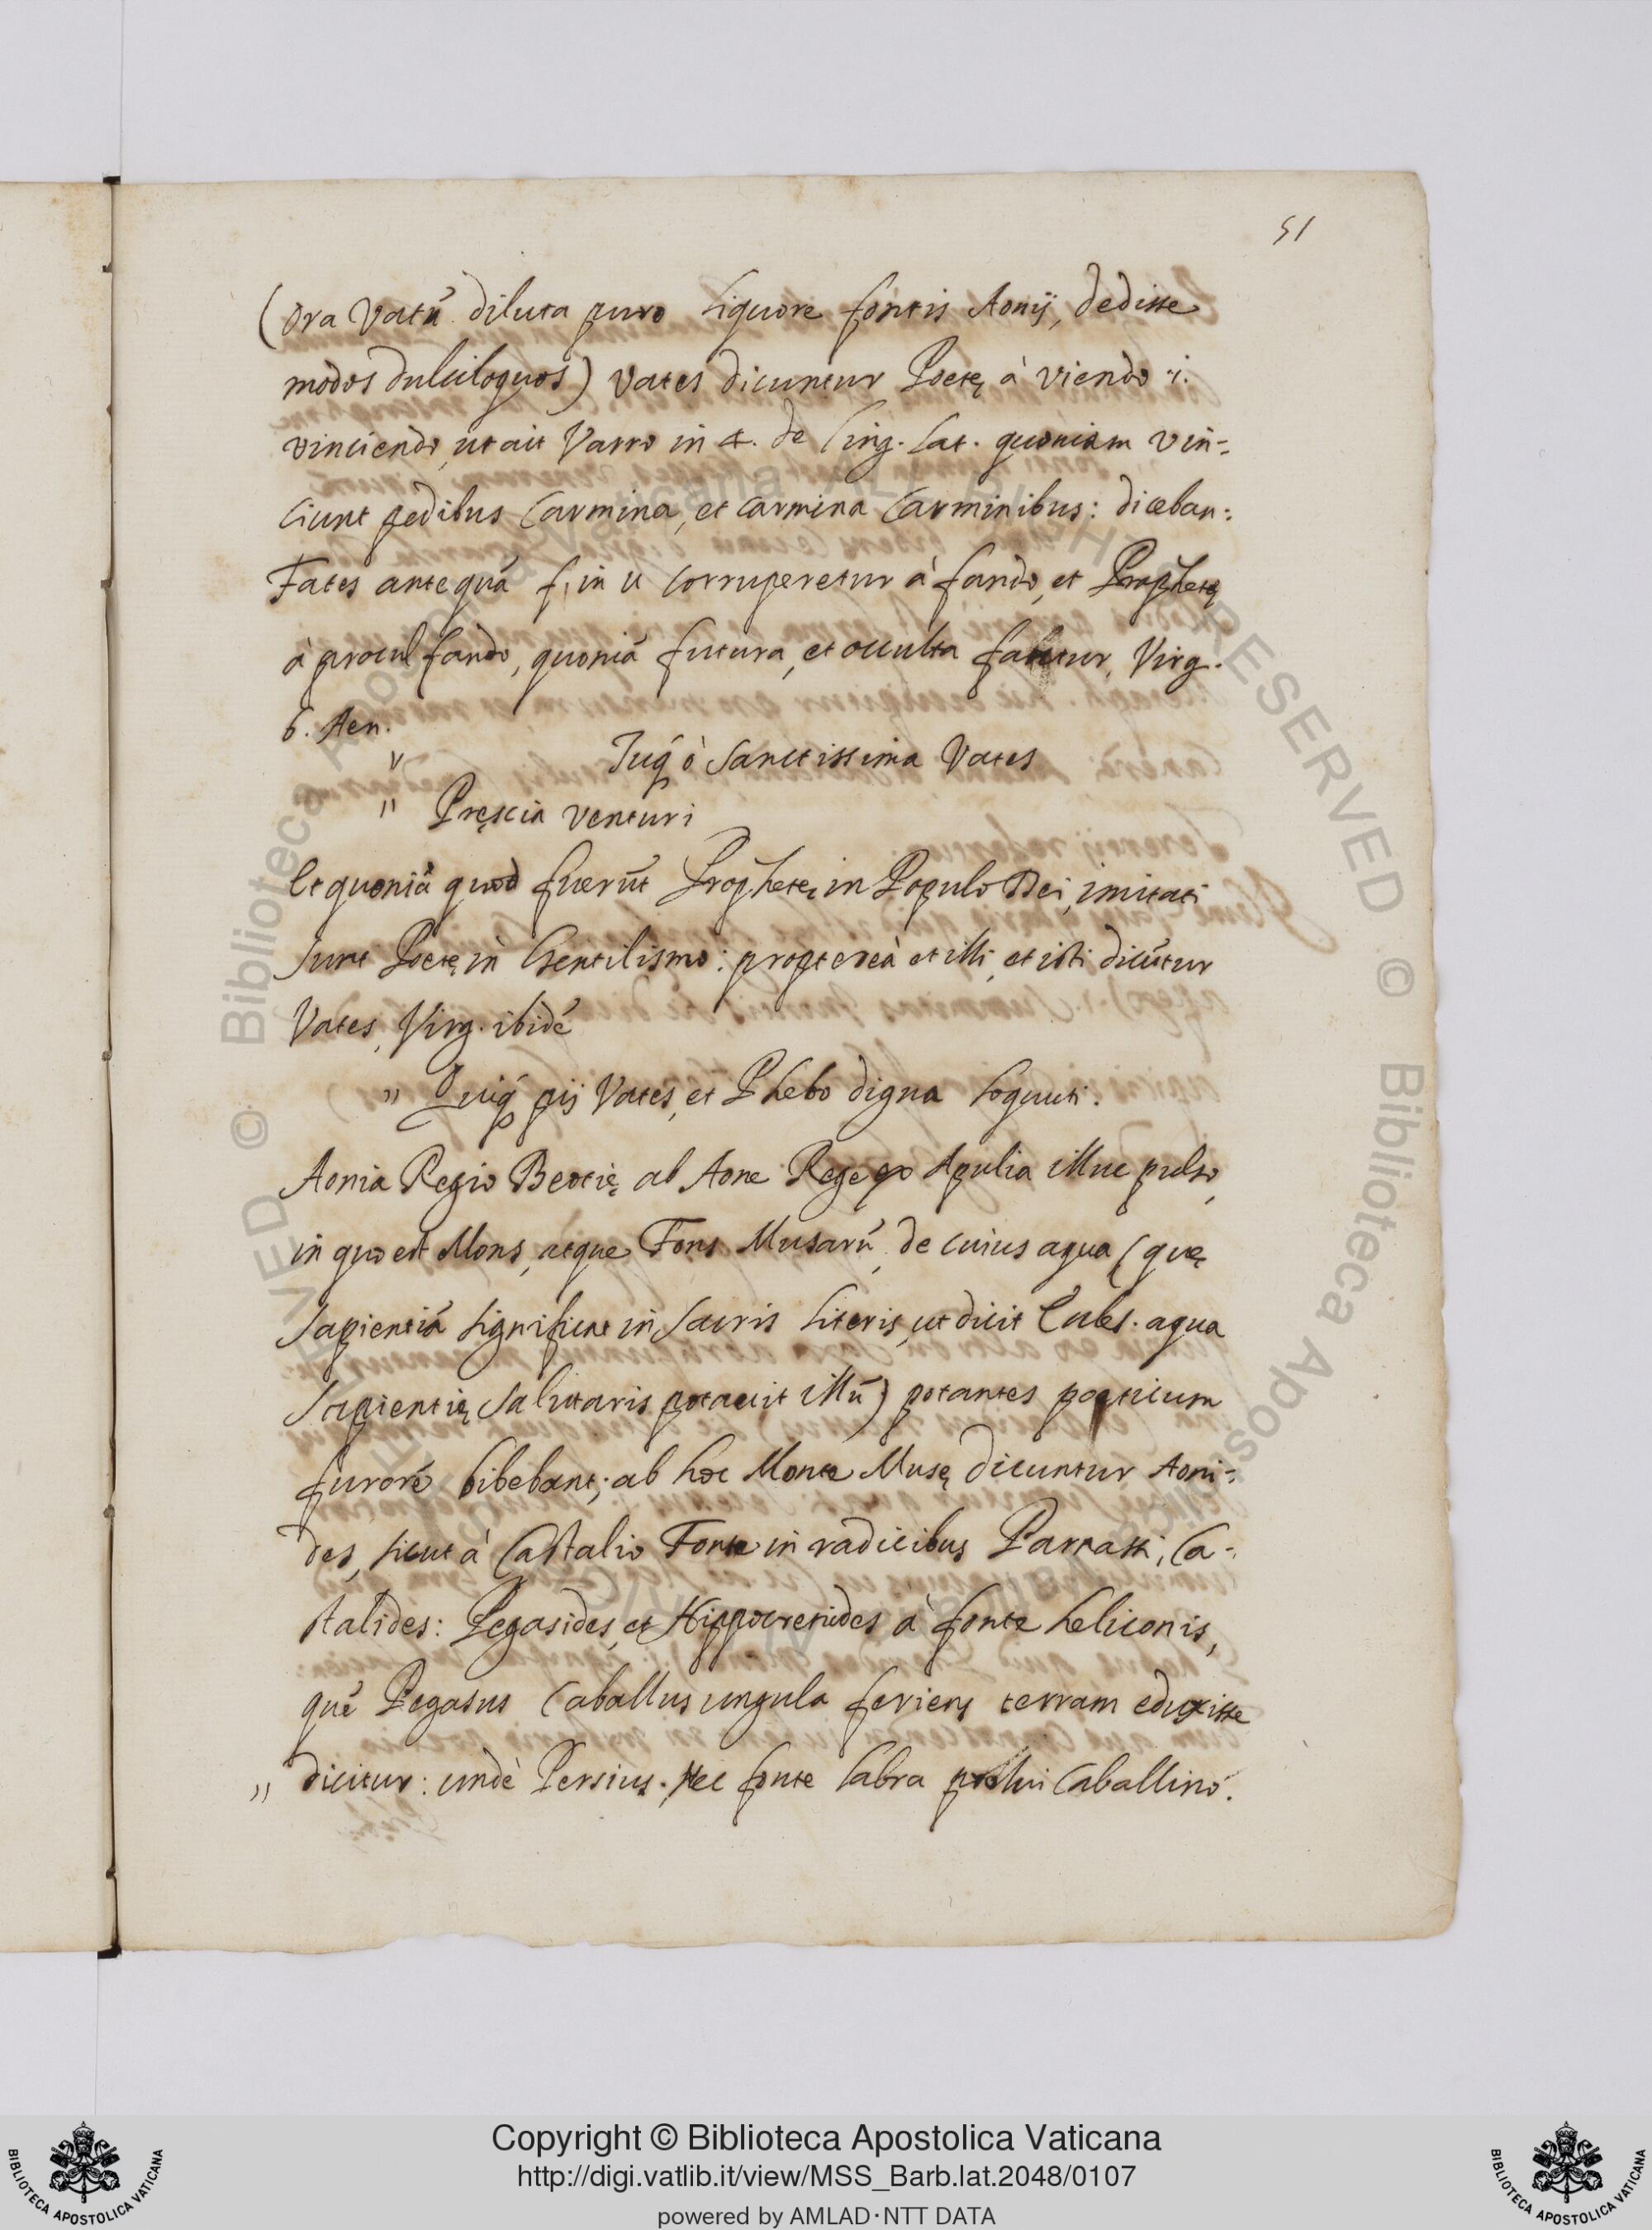 51
(ora Vatũ diluta puro liquore fontis Aonij, dedisse
modos dulciloquos) Vates dicuntur Poetę à viendo .i.
vinciendo, ut ait Varro in 4. de ling. lat. quoniam vin-
ciunt pedibus Carmina, et carmina Carminibus: diceban:
Fates antequã f, in u corruperetur à fando, et Prophetę
à procul fando, quoniã futura, et occulta fantur, Virg.
6. Aen.
Tuq́ ò sanctissima Vates
" Pręscia venturi
et quoniã quod fuerũt Prophetę in Populo Dei, imitati
sunt Poetę in Gentilismo: proptereà et illi, et isti dicũtur
Vates, Virg. ibidẽ
" Quiq́ pij Vates, et Phebo digna loquuti.
Aonia Regio Beotię ab Aone Rege ex Apulia illuc pulso,
in quo est Mons, atque Fons Musarũ, de cuius aqua (quę
sapientiã significat in sacris literis, ut dicit Eccles. aqua
sapientię salutaris potauit illũ) potantes poeticum
furorẽ bibebant; ab hoc Monte Musę dicuntur Aoni-
des, sicut à Castalio Fonte in radicibus Parnassi, Ca-
stalides: Pegasides, et Hippocrenides à fonte heliconis,
quẽ Pegasus Caballus ungula feriens terram eduxisse
" dicitur: undè Persius. Nec fonte labra prolui Caballino.
© Biblioteca Apostolica Vaticana ALL RIGHTS RESERVED © Biblioteca Apostolica Vaticana ALL RIGHTS RESERVED
BIBLIOTECA APOSTOLICA VATICANA
Copyright © Biblioteca Apostolica Vaticana
http://digi.vatlib.it/view/MSS_Barb.lat.2048/0107
powered by AMLAD·NTT DATA
BIBLIOTECA APOSTOLICA VATICANA